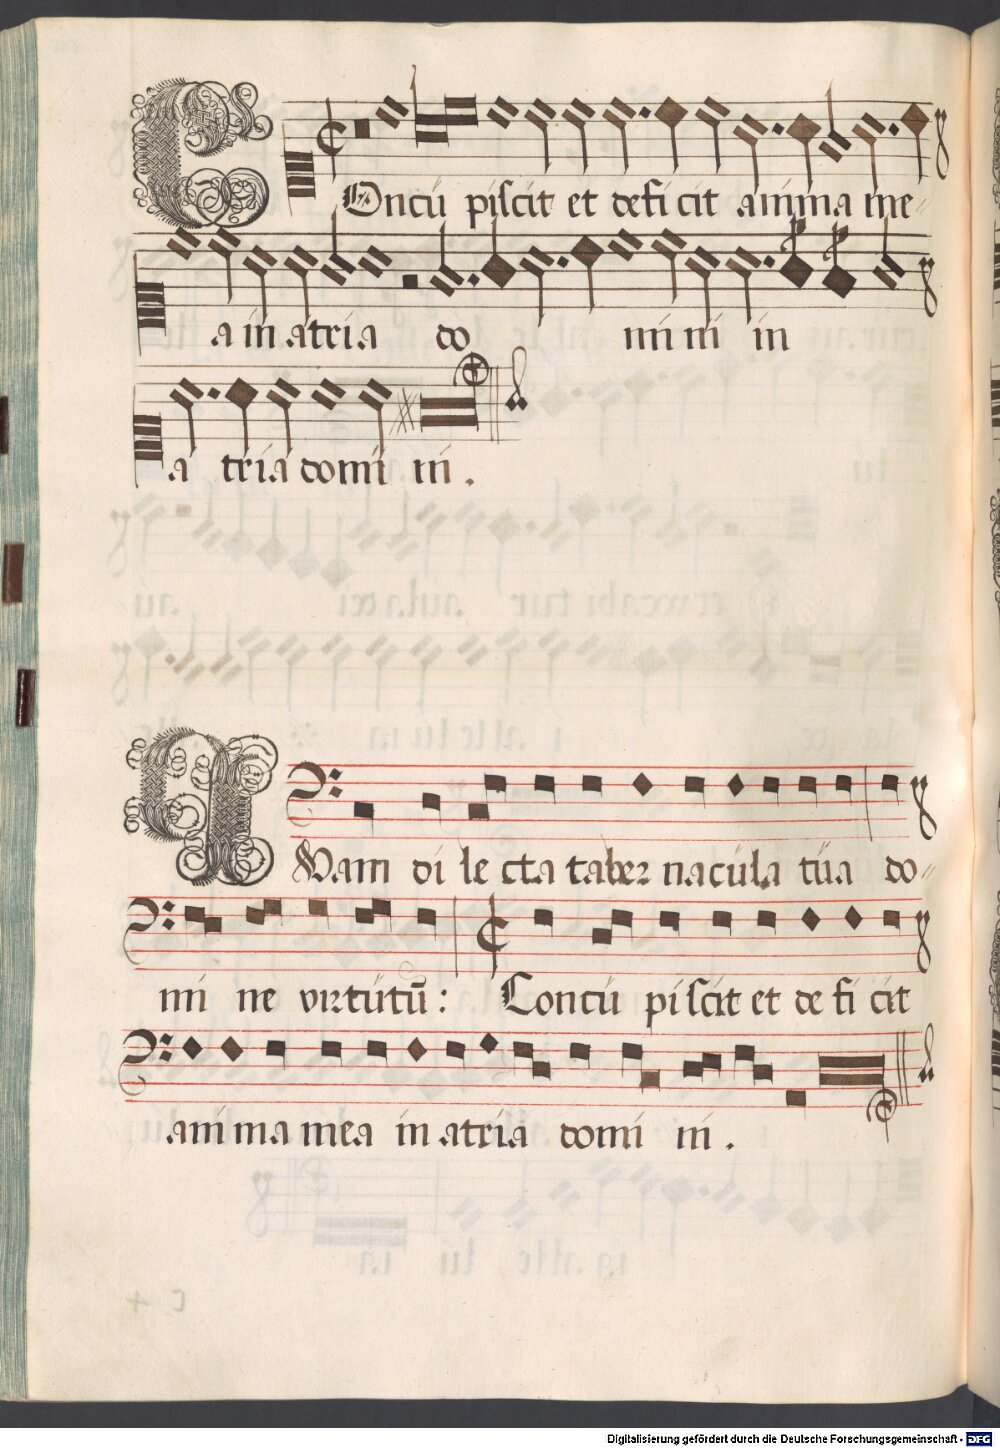 COncu piscit et defi cit anima me-
a in atria do mi ni in
a tria domi ni.
QUam di le cta taber nacula tua do-
mi ne virtutū: Concu piscit et de fi cit
anima mea in atria domi ni.
Digitalisierung gefördert durch die Deutsche Forschungsgemeinschaft - DFG